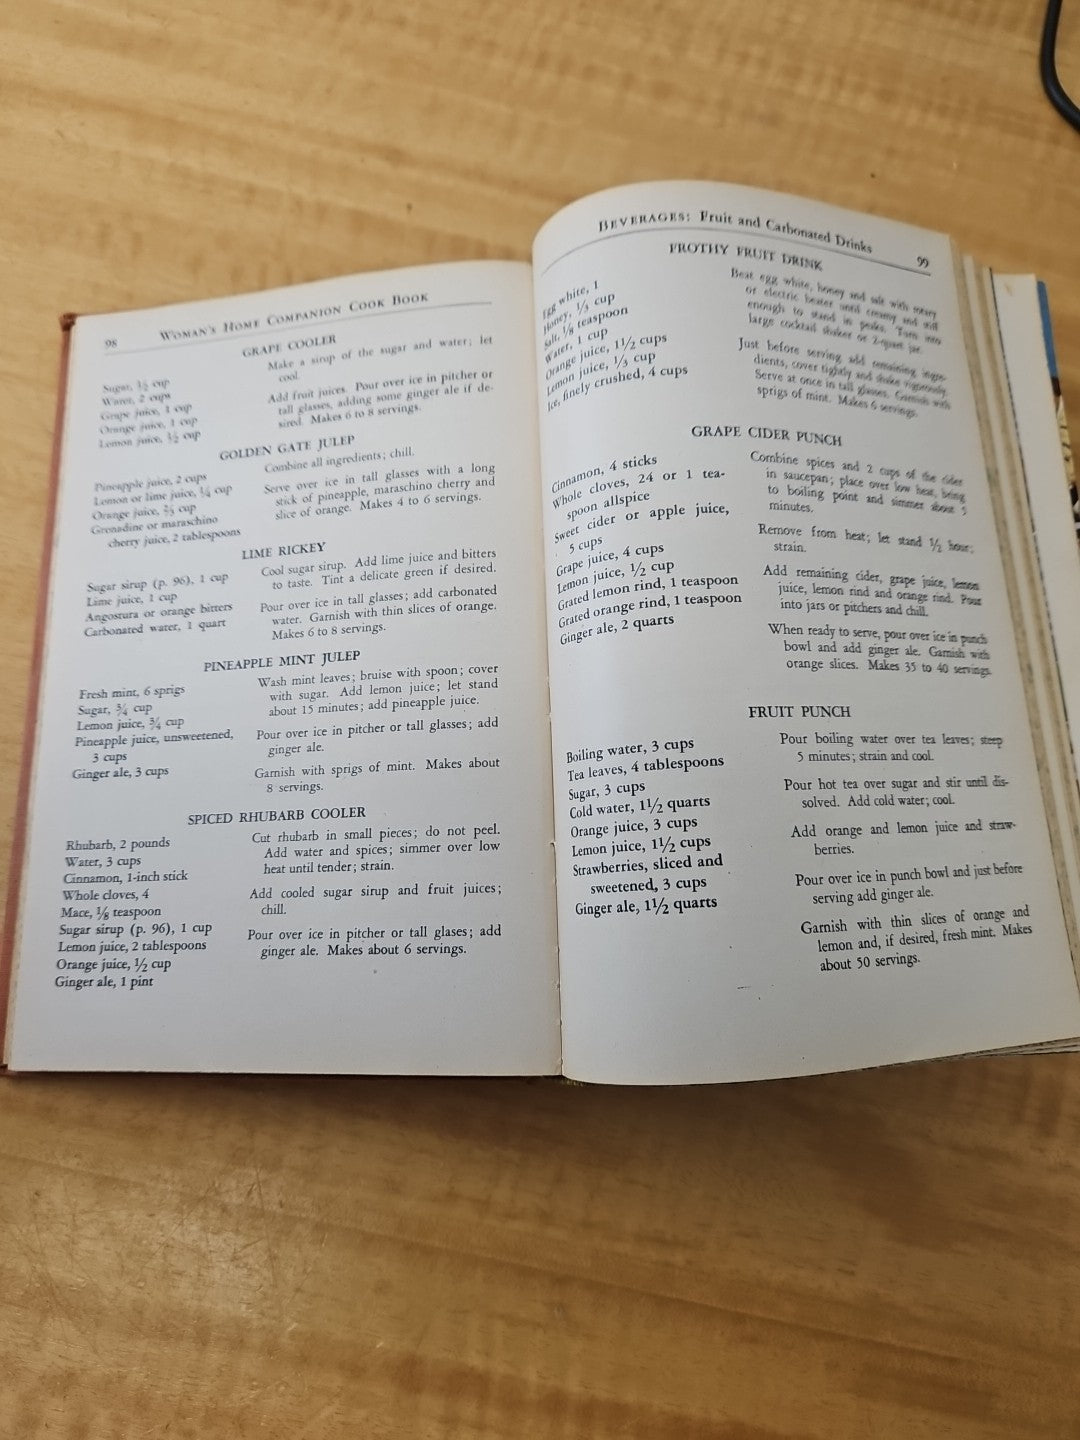 98
WOMAN'S HOME COMPANION COOK BOOK
GRAPE COOLER
Sugar, ½ cup
Water, 2 cups
Grape juice, 1 cup
Orange juice, 1 cup
Lemon juice, ½ cup
Make a sirup of the sugar and water; let
cool.
Add fruit juices. Pour over ice in pitcher or
tall glasses, adding some ginger ale if de-
sired. Makes 6 to 8 servings.
GOLDEN GATE JULEP
Pineapple juice, 2 cups
Lemon or lime juice, ¼ cup
Orange juice, ⅔ cup
Grenadine or maraschino
cherry juice, 2 tablespoons
Combine all ingredients; chill.
Serve over ice in tall glasses with a long
stick of pineapple, maraschino cherry and
slice of orange. Makes 4 to 6 servings.
LIME RICKEY
Sugar sirup (p. 96), 1 cup
Lime juice, 1 cup
Angostura or orange bitters
Carbonated water, 1 quart
Cool sugar sirup. Add lime juice and bitters
to taste. Tint a delicate green if desired.
Pour over ice in tall glasses; add carbonated
water. Garnish with thin slices of orange.
Makes 6 to 8 servings.
PINEAPPLE MINT JULEP
Fresh mint, 6 sprigs
Sugar, ¾ cup
Lemon juice, ¾ cup
Pineapple juice, unsweetened,
3 cups
Ginger ale, 3 cups
Wash mint leaves; bruise with spoon; cover
with sugar. Add lemon juice; let stand
about 15 minutes; add pineapple juice.
Pour over ice in pitcher or tall glasses; add
ginger ale.
Garnish with sprigs of mint. Makes about
8 servings.
SPICED RHUBARB COOLER
Rhubarb, 2 pounds
Water, 3 cups
Cinnamon, 1-inch stick
Whole cloves, 4
Mace, ⅛ teaspoon
Sugar sirup (p. 96), 1 cup
Lemon juice, 2 tablespoons
Orange juice, ½ cup
Ginger ale, 1 pint
Cut rhubarb in small pieces; do not peel.
Add water and spices; simmer over low
heat until tender; strain.
Add cooled sugar sirup and fruit juices;
chill.
Pour over ice in pitcher or tall glases; add
ginger ale. Makes about 6 servings.
BEVERAGES: Fruit and Carbonated Drinks
99
FROTHY FRUIT DRINK
Egg white, 1
Honey, ⅓ cup
Salt, ⅛ teaspoon
Water, 1 cup
Orange juice, 1½ cups
Lemon juice, ⅓ cup
Ice, finely crushed, 4 cups
Beat egg white, honey and salt with rotary
or electric beater until creamy and stiff
enough to stand in peaks. Turn into
large cocktail shaker or 2-quart jar.
Just before serving add remaining ingre-
dients, cover tightly and shake vigorously.
Serve at once in tall glasses. Garnish with
sprigs of mint. Makes 6 servings.
GRAPE CIDER PUNCH
Cinnamon, 4 sticks
Whole cloves, 24 or 1 tea-
spoon allspice
Sweet cider or apple juice,
5 cups
Grape juice, 4 cups
Lemon juice, ½ cup
Grated lemon rind, 1 teaspoon
Grated orange rind, 1 teaspoon
Ginger ale, 2 quarts
Combine spices and 2 cups of the cider
in saucepan; place over low heat, bring
to boiling point and simmer about 5
minutes.
Remove from heat; let stand ½ hour;
strain.
Add remaining cider, grape juice, lemon
juice, lemon rind and orange rind. Pour
into jars or pitchers and chill.
When ready to serve, pour over ice in punch
bowl and add ginger ale. Garnish with
orange slices. Makes 35 to 40 servings.
FRUIT PUNCH
Boiling water, 3 cups
Tea leaves, 4 tablespoons
Sugar, 3 cups
Cold water, 1½ quarts
Orange juice, 3 cups
Lemon juice, 1½ cups
Strawberries, sliced and
sweetened, 3 cups
Ginger ale, 1½ quarts
Pour boiling water over tea leaves; steep
5 minutes; strain and cool.
Pour hot tea over sugar and stir until dis-
solved. Add cold water; cool.
Add orange and lemon juice and straw-
berries.
Pour over ice in punch bowl and just before
serving add ginger ale.
Garnish with thin slices of orange and
lemon and, if desired, fresh mint. Makes
about 50 servings.